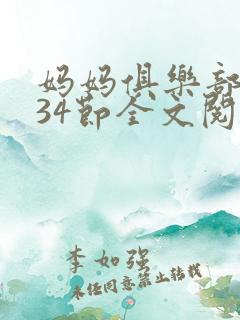 妈妈俱樂部
34節全文閱
李如强
未经同意禁止转载